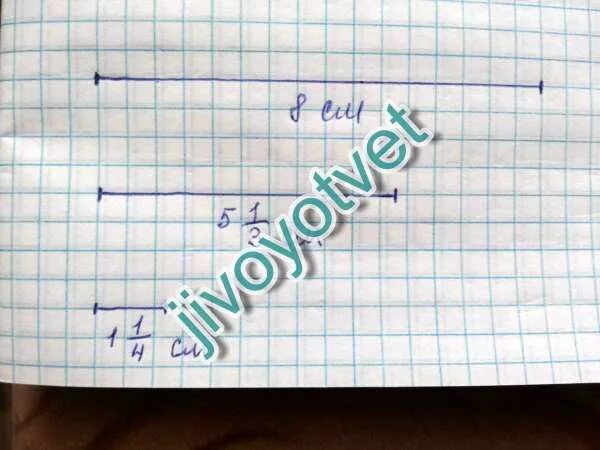 8 см
5 1/
1 1/4 см
jivoyotvet